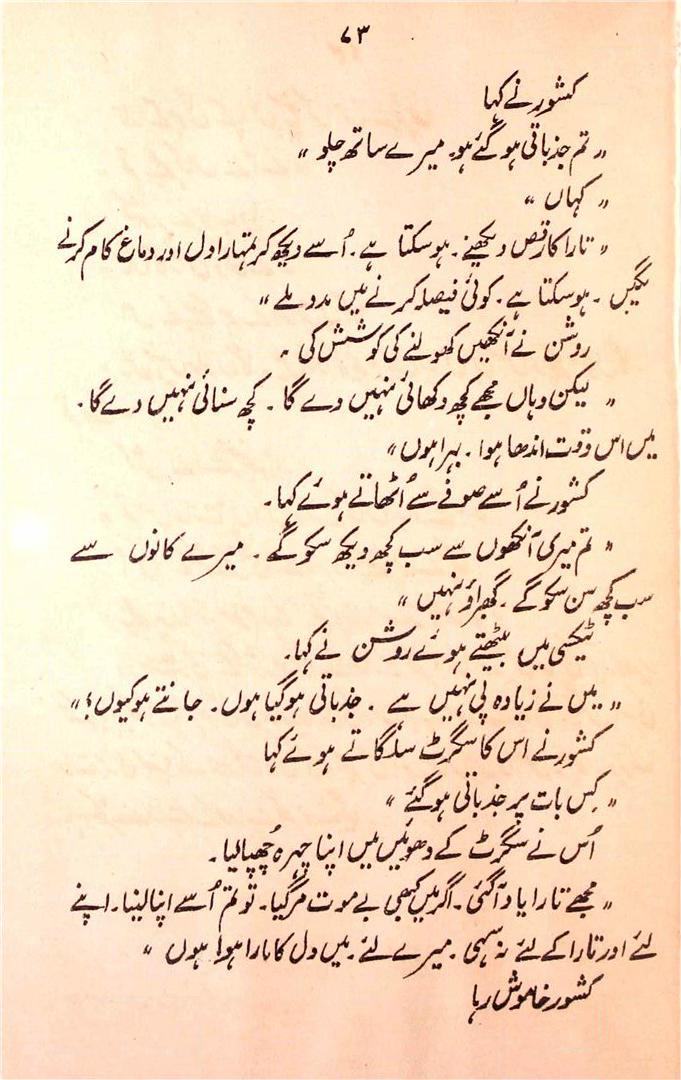 ۷۳
کشور نے کہا
"تم جذباتی ہو گئے ہو۔ میرے ساتھ چلو"
"کہاں"
"تارا کا رقص دیکھنے۔ ہو سکتا ہے۔ اُسے دیکھ کر تمہارا دل اور دماغ کام کرنے
لگیں۔ ہو سکتا ہے۔ کوئی فیصلہ کرنے میں مدد ملے"
روشن نے آنکھیں کھولنے کی کوشش کی۔
"لیکن وہاں مجھے کچھ دکھائی نہیں دے گا۔ کچھ سنائی نہیں دے گا۔
میں اس وقت اندھا ہوا۔ بہرا ہوں"
کشور نے اُسے صوفے سے اُٹھاتے ہوئے کہا۔
"تم میری آنکھوں سے سب کچھ دیکھ سکو گے۔ میرے کانوں سے
سب کچھ سن سکو گے۔ گھبراؤ نہیں"
ٹیکسی میں بیٹھتے ہوئے روشن نے کہا۔
"میں نے زیادہ پی نہیں ہے۔ جذباتی ہو گیا ہوں۔ جانتے ہو کیوں؟"
کشور نے اس کا سگرٹ سلگاتے ہوئے کہا
"کِس بات پر جذباتی ہو گئے"
اُس نے سگرٹ کے دھوئیں میں اپنا چہرہ چُھپا لیا۔
"مجھے تارا یاد آ گئی۔ اگر میں کبھی بے موت مر گیا۔ تو تم اُسے اپنا لینا۔ اپنے
لئے اور تارا کے لئے نہ سہی۔ میرے لئے۔ میں دل کا ہارا ہوا ہوں"
کشور خاموش رہا